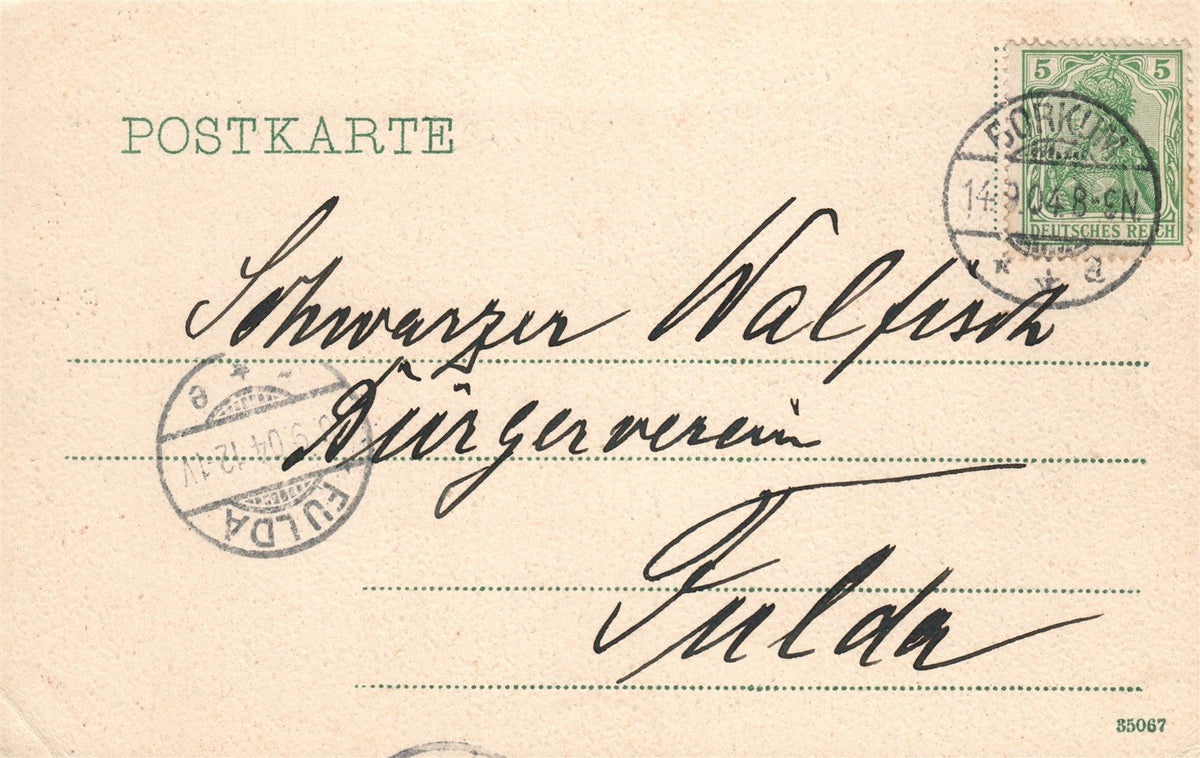 5 5
POSTKARTE
BORKUM
14.9.04.8-9N.
DEUTSCHES REICH
* * a
Schwarzer Walfisch
Bürgerverein
Fulda
* e
9.04.12-1V
FULDA
35067